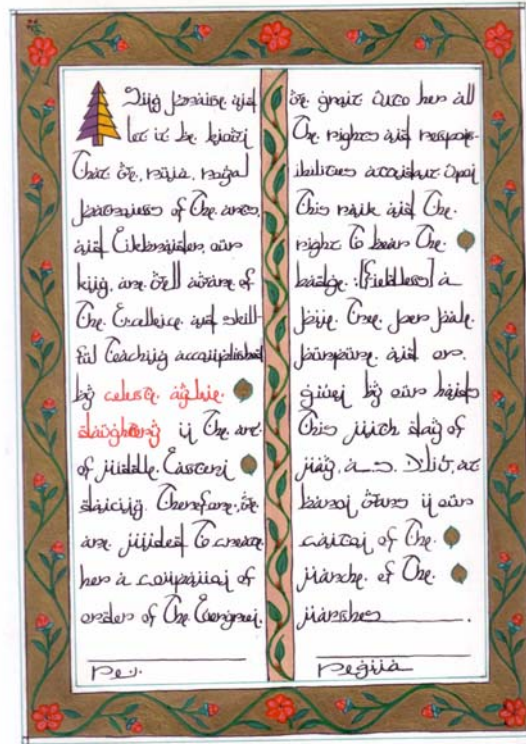 Sing praise and
let it be known
That We, royal
patroness of The arts,
and our
king, are Well aWare of
The Excellence and skill-
ful Teaching accomplished
by celeste
in The art
of middle Eastern
dancing. Therefore, We
are minded To create
her a companion of
order of The Evergreen.
Rex
We grant Unto her all
The rights and respons-
ibilities attendant Upon
This rank and The
right To bear The
badge: [fieldless] a
pine Tree per pale
purpure and or.
given by our hands
This ninth day of
may, a.s. at
baron Wars in our
canton of The
marche of The
marshes
Regina